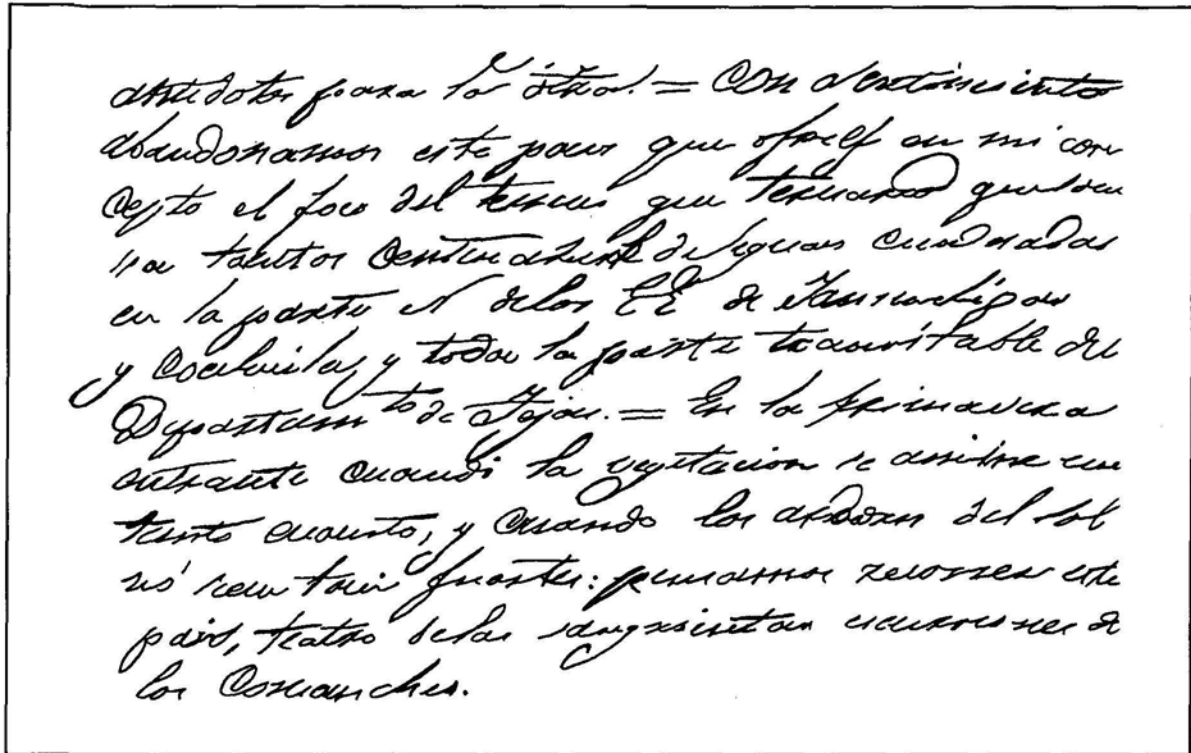 antidotos para la otra. = Con sentimiento
abandonamos este pais que en mi con
cepto el foco del que
tantos de leguas cuadradas
en la parte N de los EE. de Tamaulipas
y Coahuila, y toda la parte transitable del
Departam.to de Tejas. = En la primavera
entrante cuando la vegetacion se anime un
tanto cuanto, y cuando los ardores del sol
no sean tan fuertes: pensamos recorrer este
pais, teatro de las sangrientas escursiones de
los Comanches.